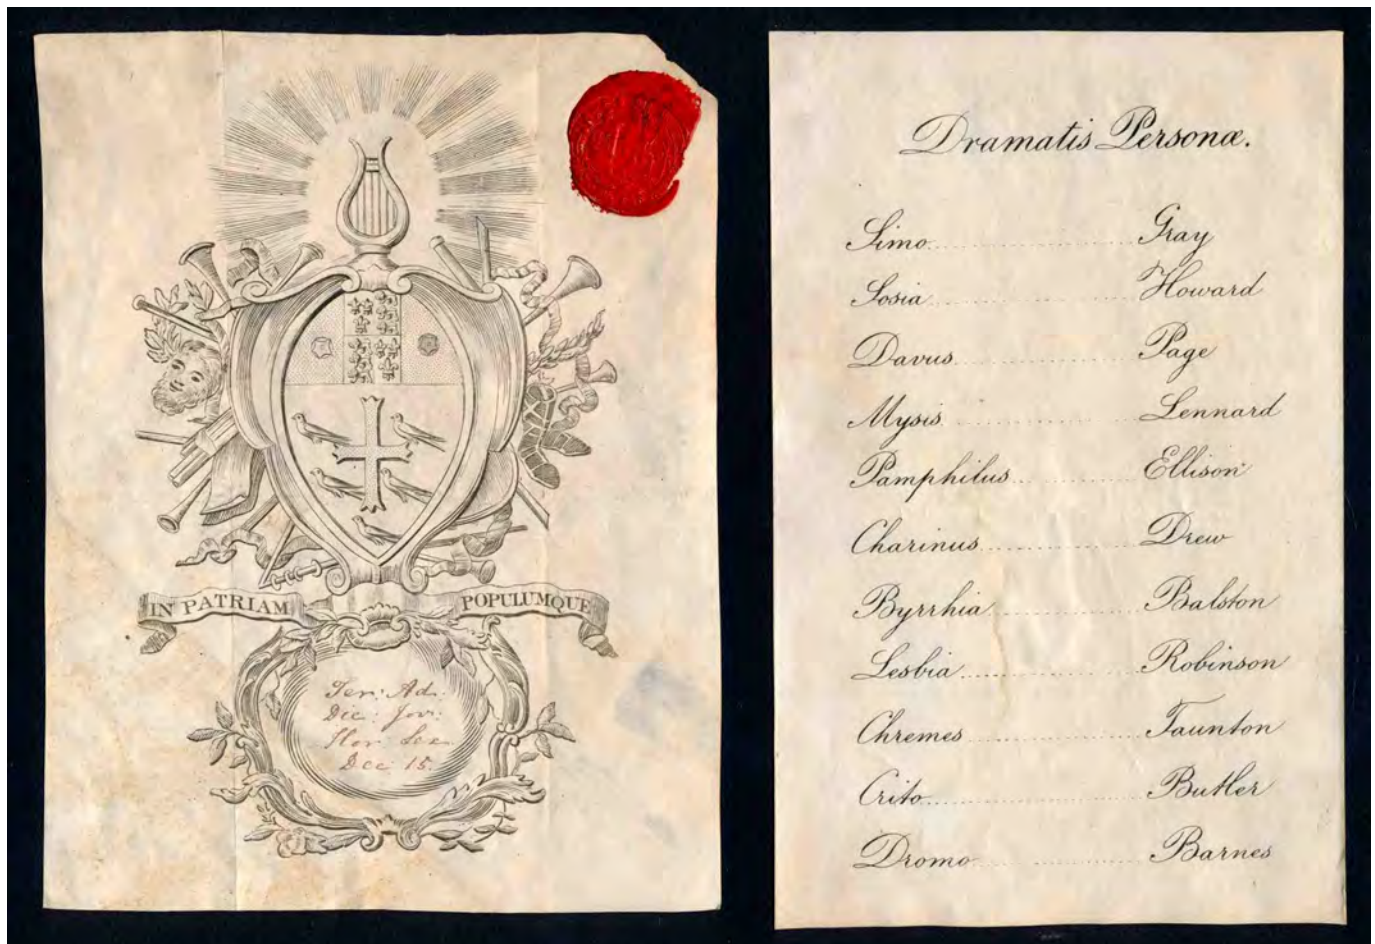 IN PATRIAM POPULUMQUE
Ter: Ad.
Die: Jov:
Hor Sex.
Dec 15.
Dramatis Personæ.
Simo Gray
Sosia Howard
Davus Page
Mysis Lennard
Pamphilus Ellison
Charinus Drew
Byrrhia Balston
Lesbia Robinson
Chremes Taunton
Crito Butler
Dromo Barnes